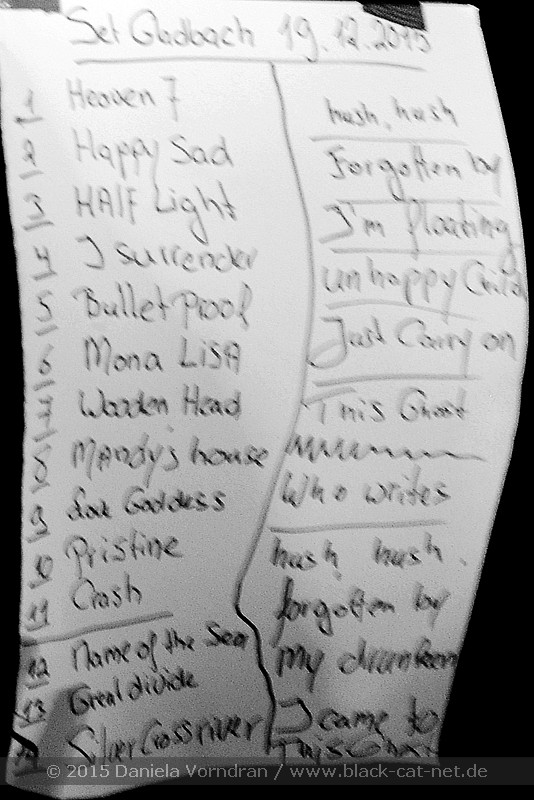 Set Gladbach 19.12.2015
1 Heaven 7
2 Happy Sad
3 HAlF Light
4 I surrender
5 Bullet Proof
6 Mona LiSA
7 Wooden Head
8 Mandy's house
9 Goddess
10 Pristine
11 Crash
12 Name of the Sea
13 Great divide
14 Silver Cross river
hush, hush
Forgotten by
I'm floating
unhappy Child
Just Carry on
This Ghost
Who writes
hush, hush.
forgotten by
my drunken
I came to
This Ghost
© 2015 Daniela Vorndran / www.black-cat-net.de